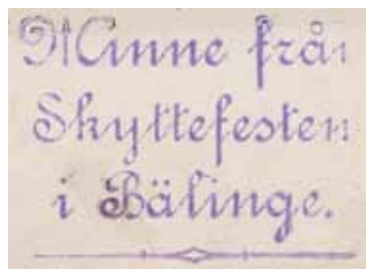 Minne från
Skyttefesten
i Bälinge.